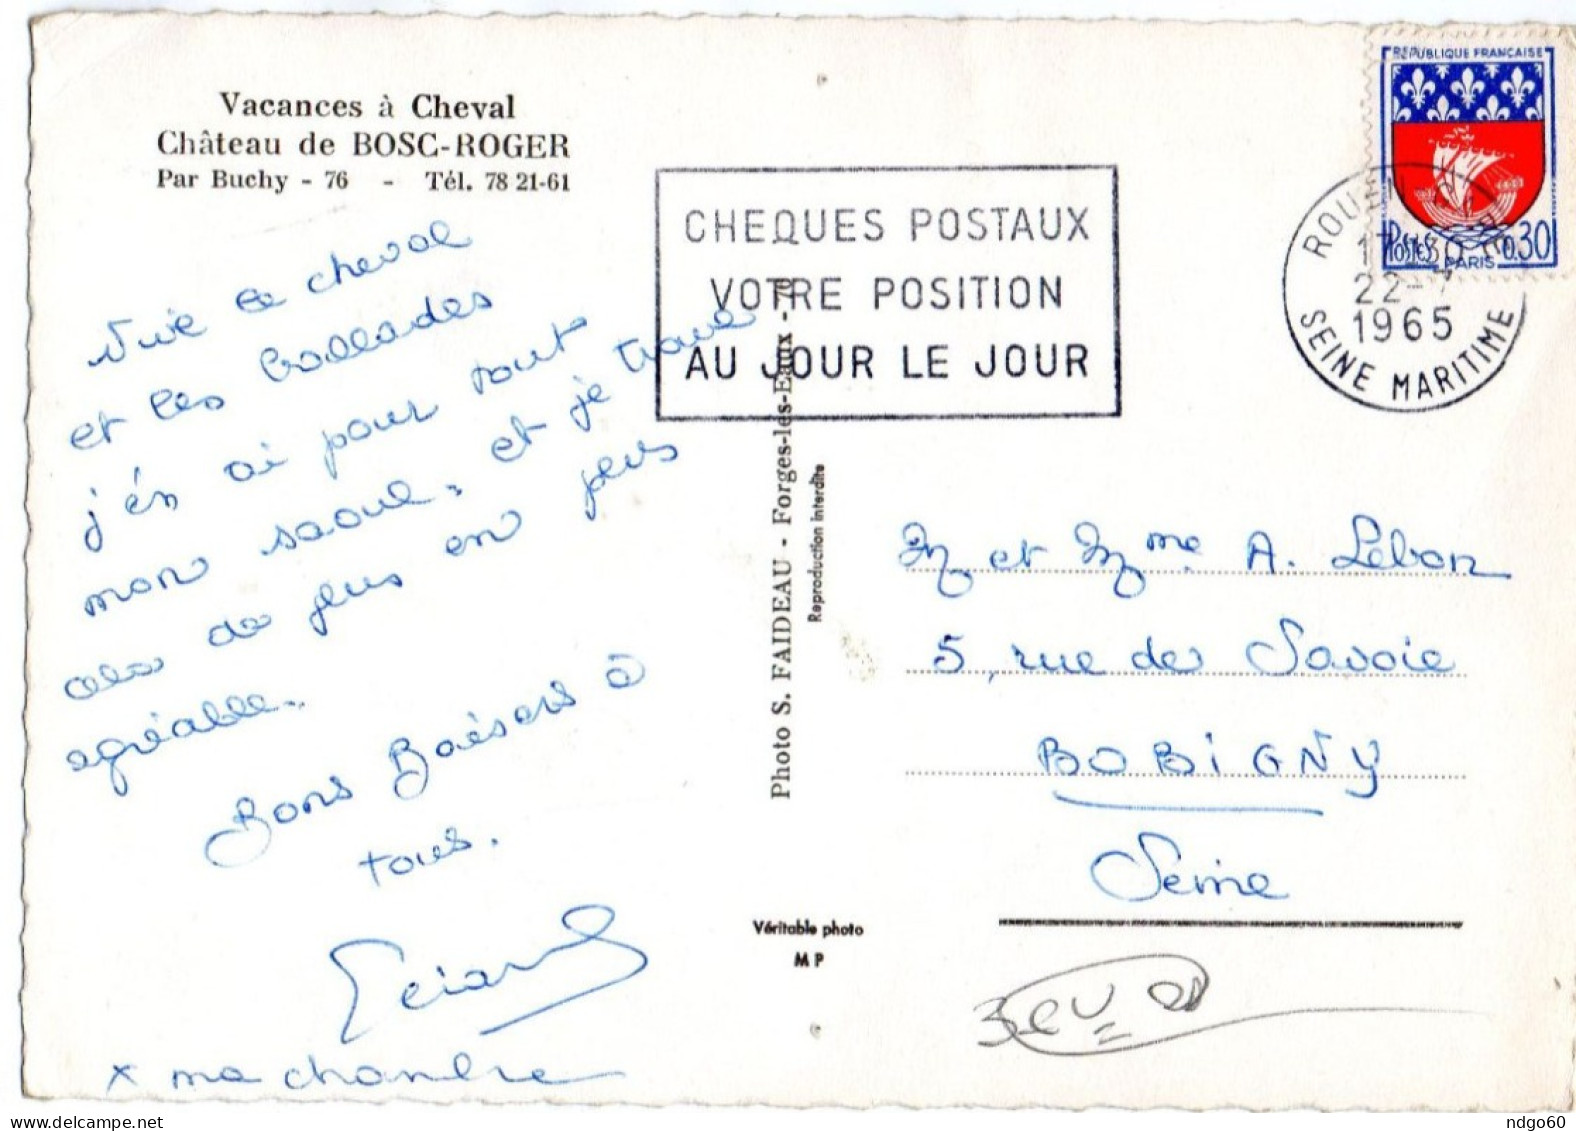 Vacances à Cheval
Château de BOSC-ROGER
Par Buchy - 76 - Tél. 78 21-61
Vive le cheval
et les ballades
j'en ai pour tout
mon saoul. et je trouve
cela de plus en plus
agréable.
Bons Baisers à
tous.
x ma chambre
CHEQUES POSTAUX
VOTRE POSITION
AU JOUR LE JOUR
Photo S. FAIDEAU - Forges-les-Eaux - 76
Reproduction interdite
Véritable photo
M P
REPUBLIQUE FRANÇAISE
POSTES
0.30
PARIS
ROUEN
22-7
1965
SEINE MARITIME
M et Mme A. Lebon
5, rue de Savoie
BOBIGNY
Seine
ndgo60